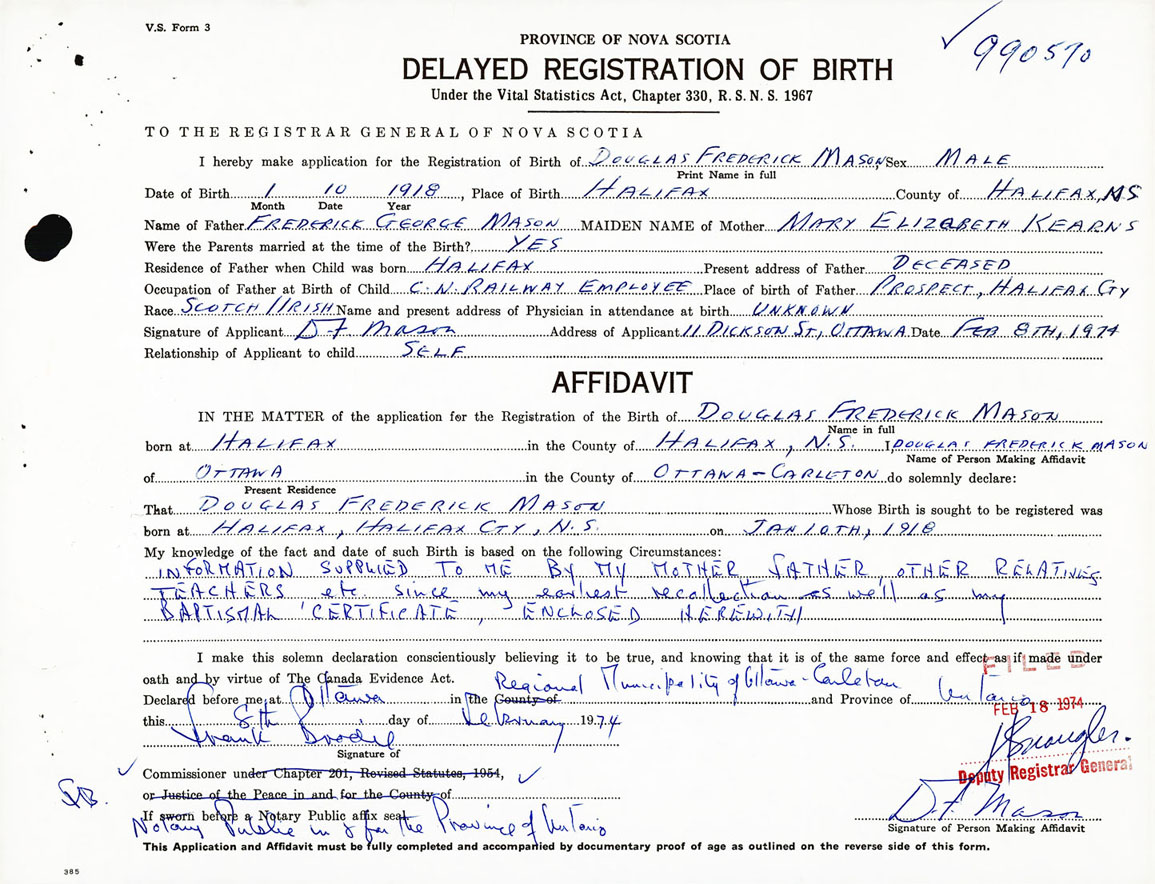 V.S. Form 3
PROVINCE OF NOVA SCOTIA
990570
DELAYED REGISTRATION OF BIRTH
Under the Vital Statistics Act, Chapter 330, R. S. N. S. 1967
TO THE REGISTRAR GENERAL OF NOVA SCOTIA
I hereby make application for the Registration of Birth of DOUGLAS FREDERICK MASON Sex MALE
Print Name in full
Date of Birth 1 10 1918, Place of Birth HALIFAX County of HALIFAX, N.S
Month Date Year
Name of Father FREDERICK GEORGE MASON MAIDEN NAME of Mother MARY ELIZABETH KEARNS
Were the Parents married at the time of the Birth? YES
Residence of Father when Child was born HALIFAX Present address of Father DECEASED
Occupation of Father at Birth of Child C.N. RAILWAY EMPLOYEE Place of birth of Father PROSPECT, HALIFAX CTY
Race SCOTCH IRISH Name and present address of Physician in attendance at birth UNKNOWN
Signature of Applicant D F Mason Address of Applicant 11 DICKSON ST., OTTAWA Date FEB 8TH, 1974
Relationship of Applicant to child SELF
AFFIDAVIT
IN THE MATTER of the application for the Registration of the Birth of DOUGLAS FREDERICK MASON
Name in full
born at HALIFAX in the County of HALIFAX, N.S. I, DOUGLAS FREDERICK MASON
Name of Person Making Affidavit
of OTTAWA in the County of OTTAWA-CARLETON do solemnly declare:
Present Residence
That DOUGLAS FREDERICK MASON Whose Birth is sought to be registered was
born at HALIFAX, HALIFAX CTY, N.S. on JAN 10TH, 1918
My knowledge of the fact and date of such Birth is based on the following Circumstances:
INFORMATION SUPPLIED TO ME BY MY MOTHER, FATHER, OTHER RELATIVES,
TEACHERS etc. since my earliest recollection as well as my
BAPTISMAL CERTIFICATE, ENCLOSED HEREWITH
I make this solemn declaration conscientiously believing it to be true, and knowing that it is of the same force and effect as if made under
FILED
oath and by virtue of The Canada Evidence Act.
Declared before me at Ottawa in the County of Regional Municipality of Ottawa-Carleton and Province of Ontario
FEB 18 1974
this 8th day of February 1974
Frank
Signature of
Deputy Registrar General
Commissioner under Chapter 201, Revised Statutes, 1954,
or Justice of the Peace in and for the County of
D F Mason
If sworn before a Notary Public affix seal
Notary Public in & for the Province of Ontario
Signature of Person Making Affidavit
This Application and Affidavit must be fully completed and accompanied by documentary proof of age as outlined on the reverse side of this form.
385